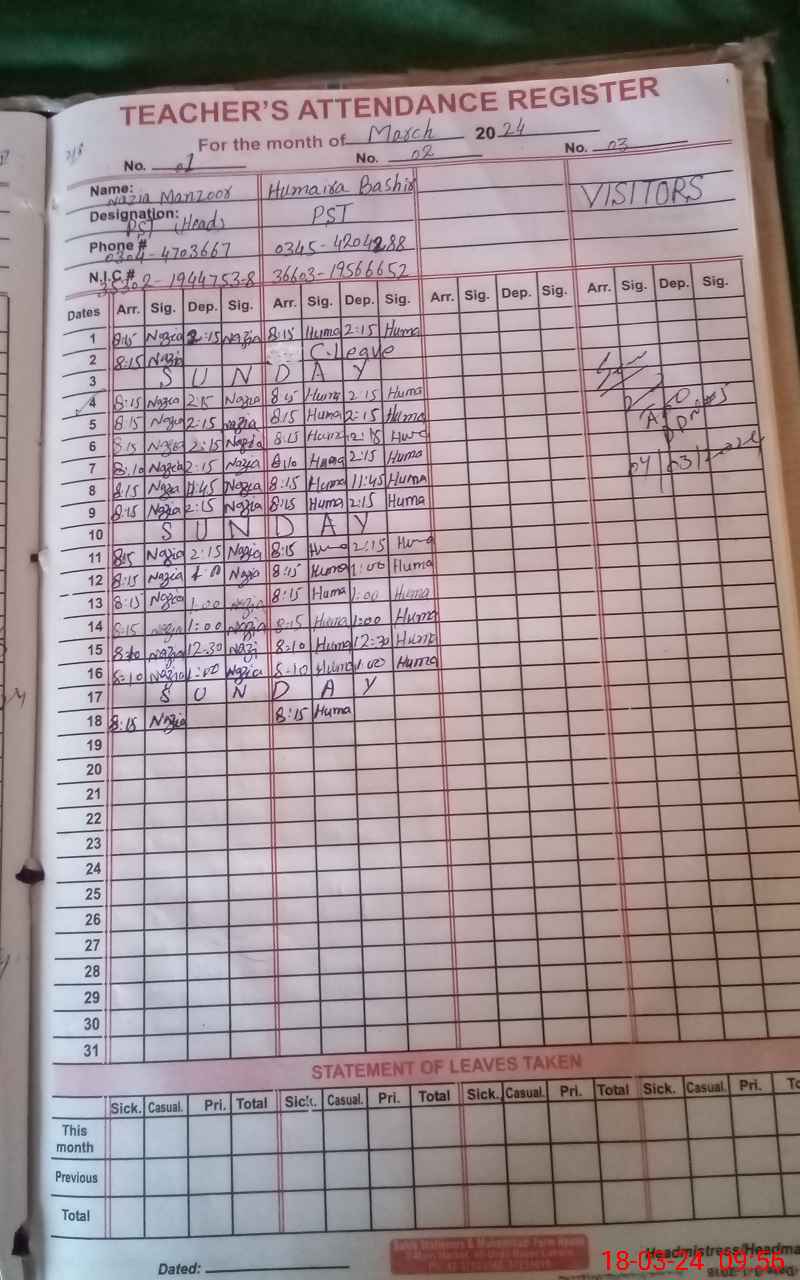 TEACHER'S ATTENDANCE REGISTER
For the month of March 2024
No. 01 No. 02 No. 03
Name: Nazia Manzoor Humaira Bashir VISITORS
Designation: PST (Head) PST
Phone # 0304-4703667 0345-4204288
N.I.C.# 35302-1944753-8 36603-19566652
Dates Arr. Sig. Dep. Sig. Arr. Sig. Dep. Sig. Arr. Sig. Dep. Sig. Arr. Sig. Dep. Sig.
1 8:15 Nazia 2:15 Nazia 8:15 Huma 2:15 Huma
2 8:15 Nazia C.Leave
3 S U N D A Y
4 8:15 Nazia 2:15 Nazia 8:15 Huma 2:15 Huma
5 8:15 Nazia 2:15 Nazia 8:15 Huma 2:15 Huma
6 8:15 Nazia 2:15 Nazia 8:15 Huma 2:15 Huma
7 8:10 Nazia 2:15 Nazia 8:10 Huma 2:15 Huma
8 8:15 Nazia 11:45 Nazia 8:15 Huma 11:45 Huma
9 8:15 Nazia 2:15 Nazia 8:15 Huma 2:15 Huma
10 S U N D A Y
11 8:15 Nazia 2:15 Nazia 8:15 Huma 2:15 Huma
12 8:15 Nazia Nazia 8:15 Huma 1:00 Huma
13 8:15 Nazia 1:00 Nazia 8:15 Huma 1:00 Huma
14 8:15 Nazia 1:00 Nazia 8:15 Huma 1:00 Huma
15 8:10 Nazia 12-30 Nazi 8:10 Huma 12:30 Huma
16 8:10 Nazia 1:00 Nazia 8:10 Huma 1:00 Huma
17 S U N D A Y
18 8:15 Nazia 8:15 Huma
19
20
21
22
23
24
25
26
27
28
29
30
31
STATEMENT OF LEAVES TAKEN
Sick. Casual. Pri. Total Sick. Casual. Pri. Total Sick. Casual. Pri. Total Sick. Casual. Pri.
This month
Previous
Total
Dated:
Headmistress/Headma
18-03-24 09:56